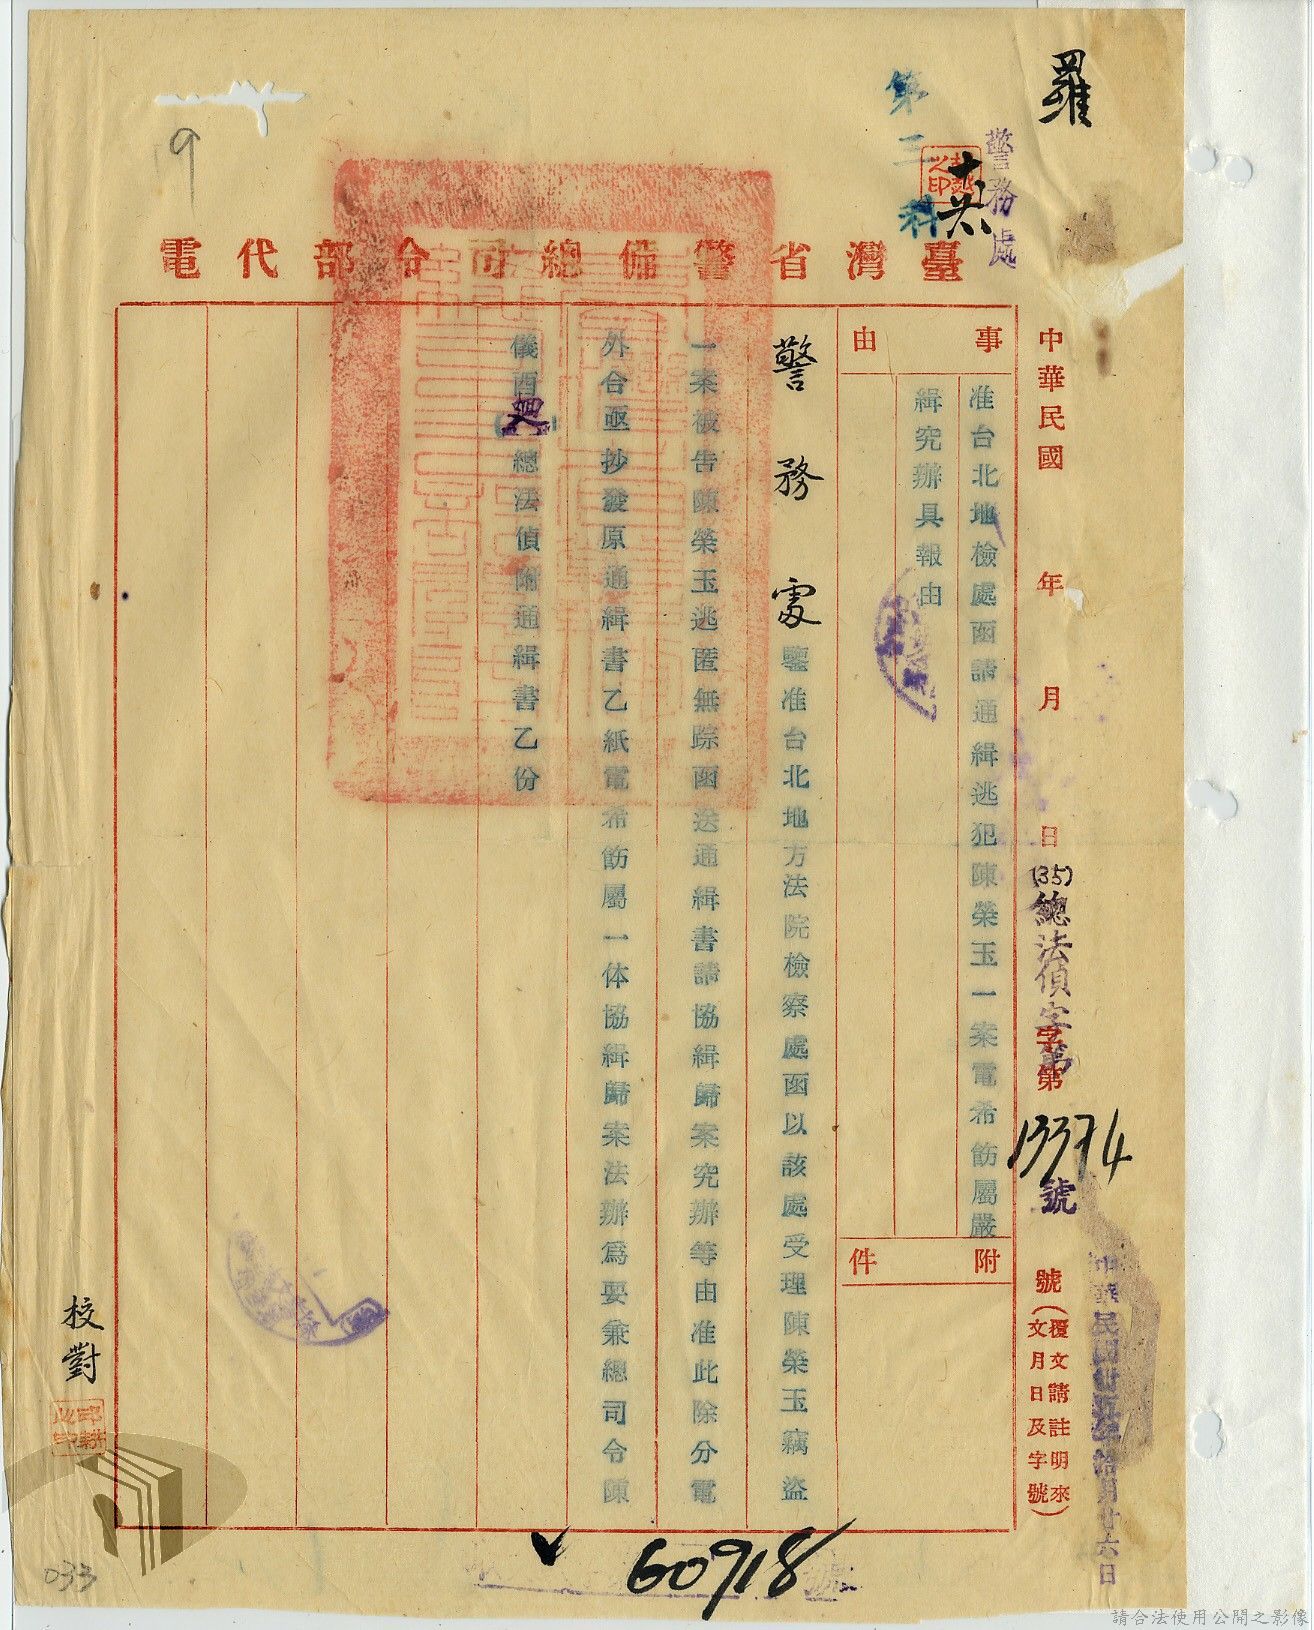 羅
警務處
第二科
臺灣省警備總司令部代電
中華民國 年 月 日
(35)總法偵字第
字第
13374
號
號(覆文請註明來文月日及字號)
中華民國卅五年拾月廿六日
事由
准台北地檢處函請通緝逃犯陳榮玉一案電希飭屬嚴
緝究辦具報由
附件
警務處鑒准台北地方法院檢察處函以該處受理陳榮玉竊盜
一案被告陳榮玉逃匿無踪函送通緝書請協緝歸案究辦等由准此除分電
外合亟抄發原通緝書乙紙電希飭屬一体協緝歸案法辦為要兼總司令陳
儀酉 總法偵附通緝書乙份
校對
60918
19
033
請合法使用公開之影像